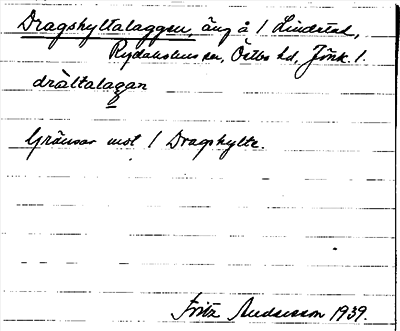 Dragshyltalaggen, äng å 1 Lindstad,
Rydaholms sn, Östbo hd, Jönk. l.
dràltalagan
Gränsar mot 1 Dragshylte.
Fritz Andersson 1939.